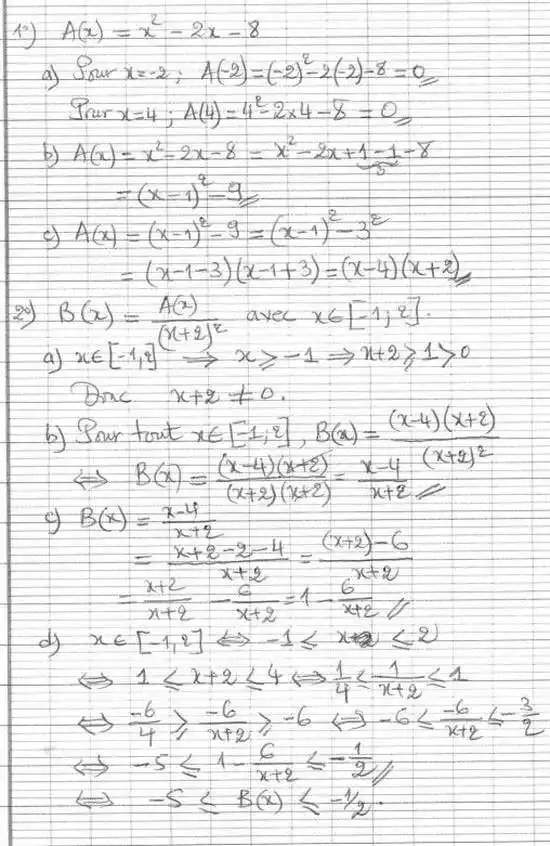 1°) A(x) = x² - 2x - 8
a) Pour x = -2 ; A(-2) = (-2)² - 2(-2) - 8 = 0
Pour x = 4 ; A(4) = 4² - 2×4 - 8 = 0
b) A(x) = x² - 2x - 8 = x² - 2x + 1 - 1 - 8
= (x - 1)² - 9
c) A(x) = (x-1)² - 9 = (x-1)² - 3²
= (x-1-3)(x-1+3) = (x-4)(x+2)
2°) B(x) = A(x)/(x+2)² avec x ∈ [-1; 2].
a) x ∈ [-1, 2] ⟹ x ⩾ -1 ⟹ x+2 ⩾ 1 > 0
Donc x+2 ≠ 0.
b) Pour tout x ∈ [-1; 2], B(x) = (x-4)(x+2)/(x+2)²
⟺ B(x) = (x-4)(x+2)/(x+2)(x+2) = x-4/x+2
c) B(x) = x-4/x+2
= x+2-2-4/x+2 = (x+2)-6/x+2
= x+2/x+2 - 6/x+2 = 1 - 6/x+2
d) x ∈ [-1, 2] ⟺ -1 ⩽ x ⩽ 2
⟺ 1 ⩽ x+2 ⩽ 4 ⟺ 1/4 ⩽ 1/x+2 ⩽ 1
⟺ -6/4 ⩾ -6/x+2 ⩾ -6 ⟺ -6 ⩽ -6/x+2 ⩽ -3/2
⟺ -5 ⩽ 1 - 6/x+2 ⩽ -1/2
⟺ -5 ⩽ B(x) ⩽ -1/2.